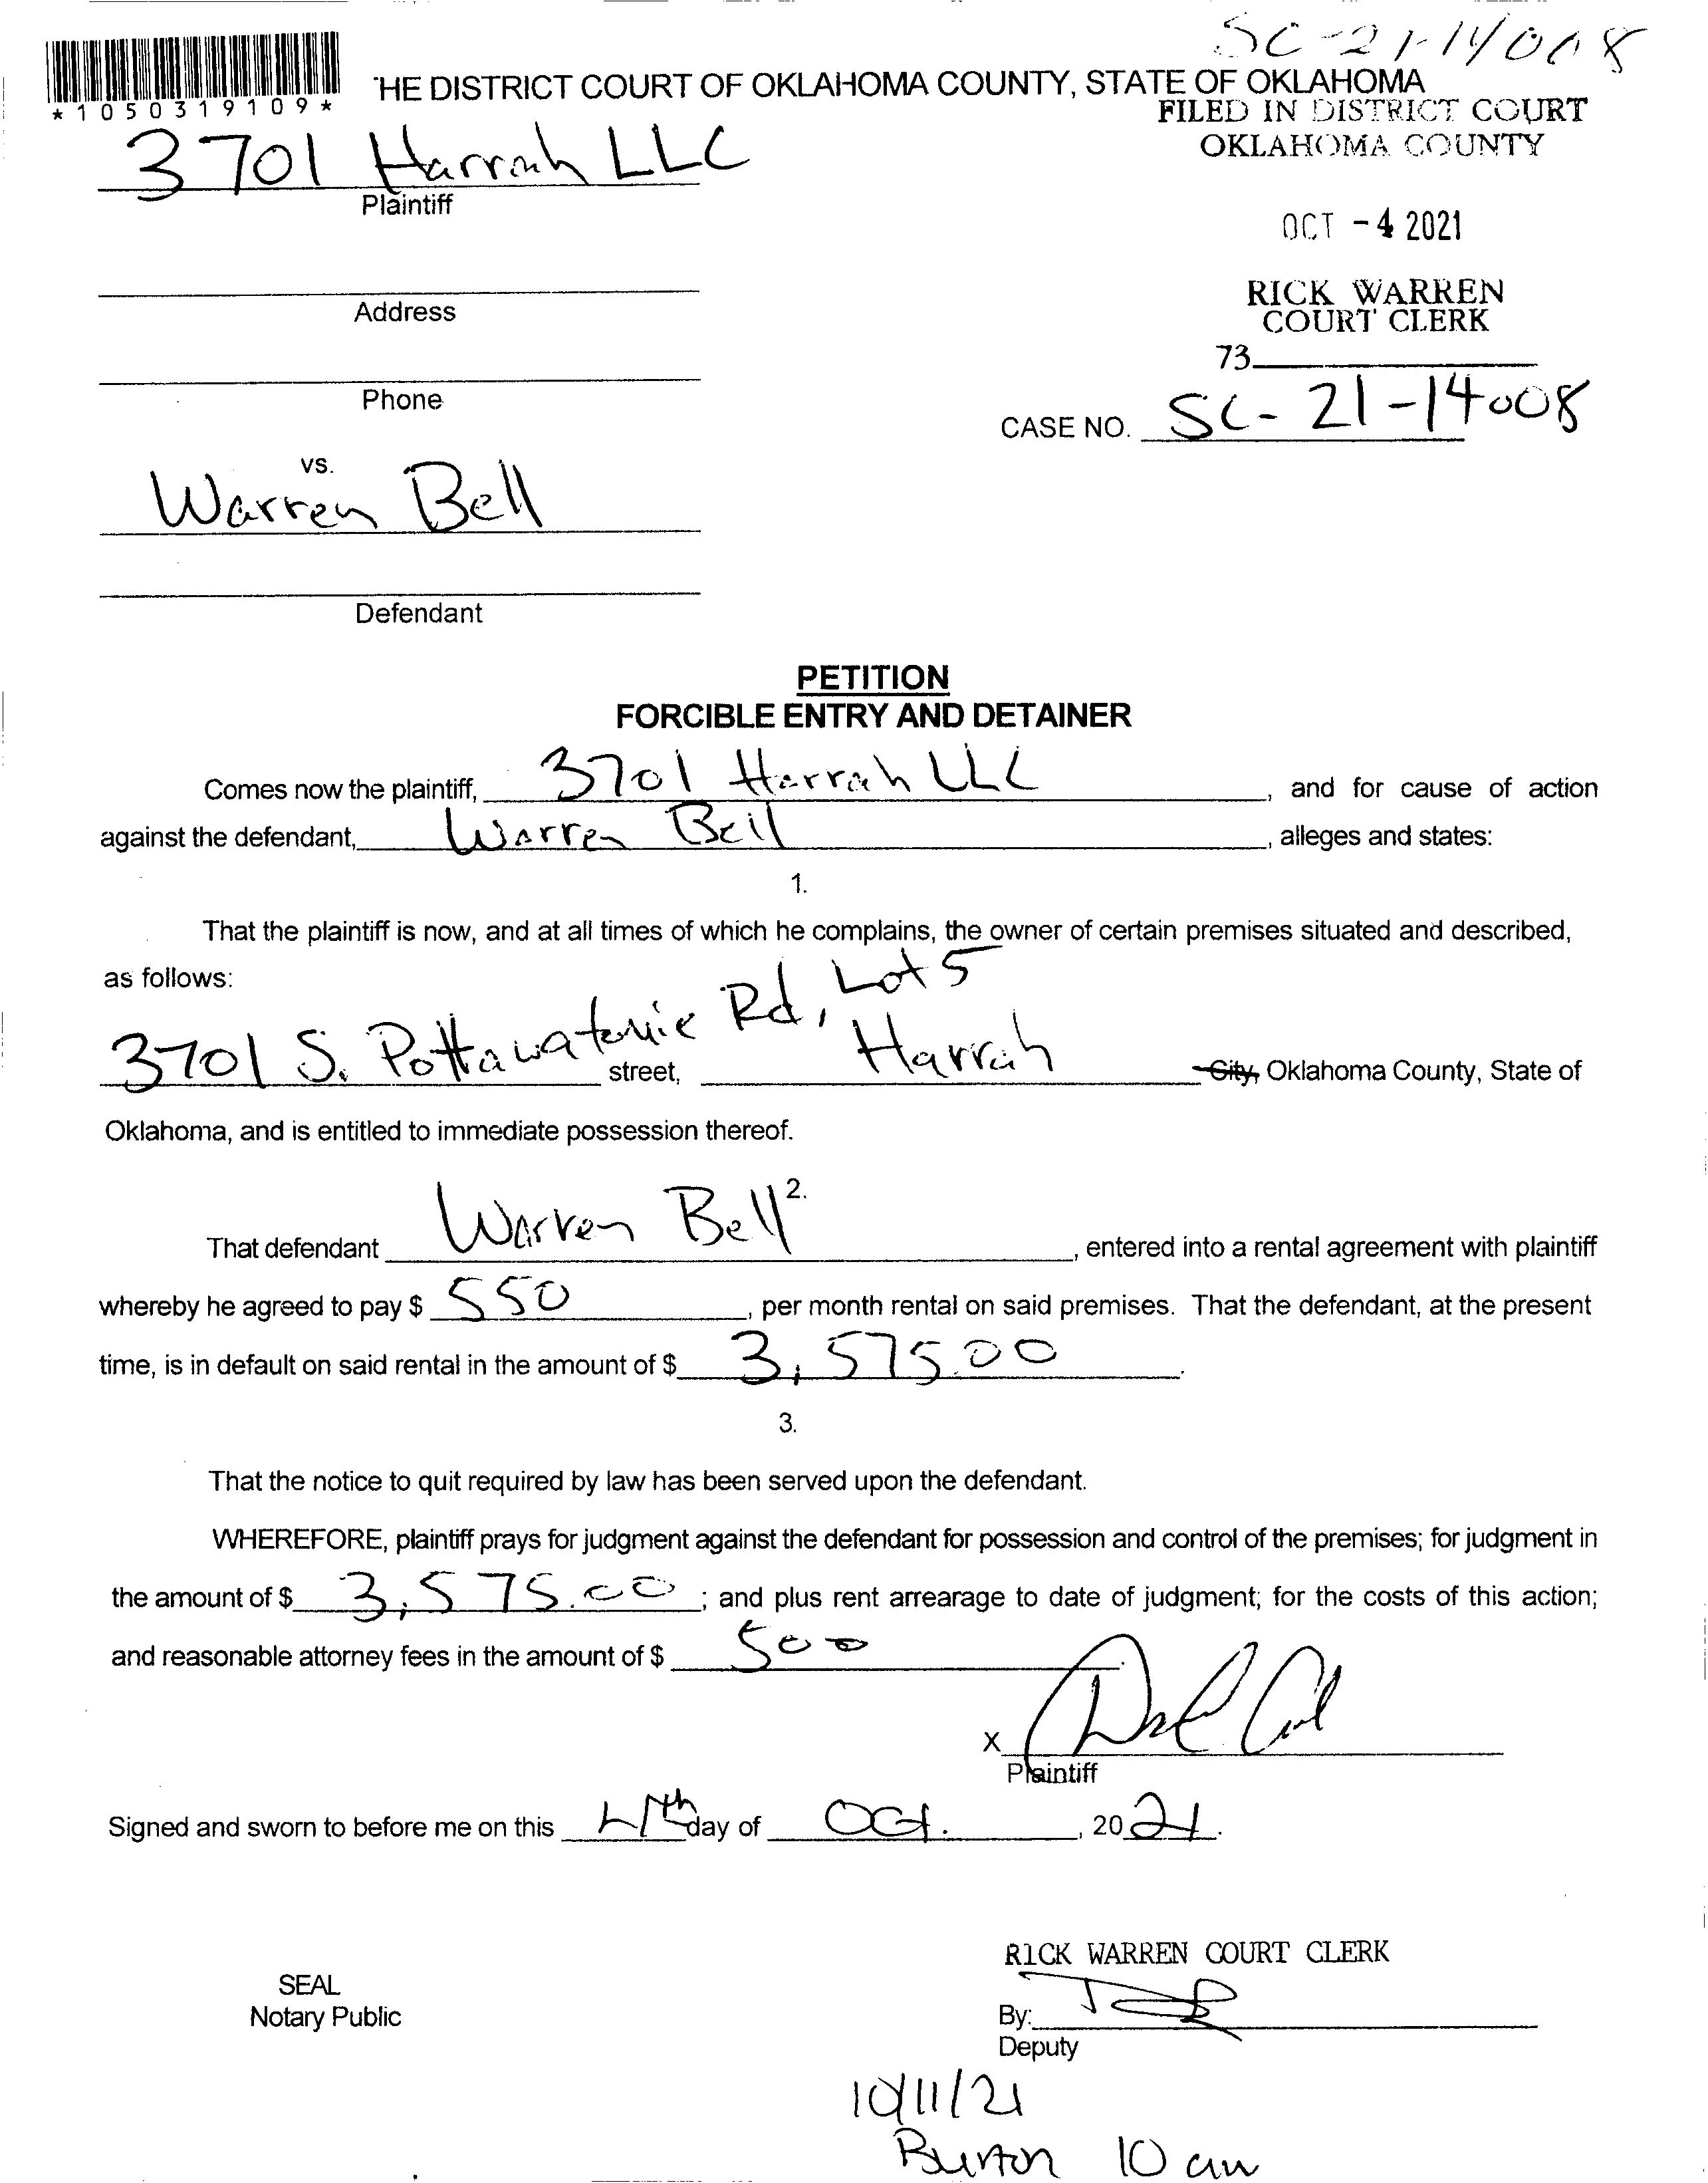 SC-21-14008
*1050319109*
'HE DISTRICT COURT OF OKLAHOMA COUNTY, STATE OF OKLAHOMA
FILED IN DISTRICT COURT
OKLAHOMA COUNTY
3701 Harrah LLC
Plaintiff
OCT -4 2021
Address
RICK WARREN
COURT CLERK
73
Phone
CASE NO. SC-21-14008
vs.
Warren Bell
Defendant
PETITION
FORCIBLE ENTRY AND DETAINER
Comes now the plaintiff, 3701 Harrah LLC, and for cause of action
against the defendant, Warren Bell, alleges and states:
1.
That the plaintiff is now, and at all times of which he complains, the owner of certain premises situated and described,
as follows:
3701 S. Pottawatomie Rd, Lot 5 street, Harrah City, Oklahoma County, State of
Oklahoma, and is entitled to immediate possession thereof.
2.
That defendant Warren Bell, entered into a rental agreement with plaintiff
whereby he agreed to pay $ 550, per month rental on said premises. That the defendant, at the present
time, is in default on said rental in the amount of $ 3,575.00.
3.
That the notice to quit required by law has been served upon the defendant.
WHEREFORE, plaintiff prays for judgment against the defendant for possession and control of the premises; for judgment in
the amount of $ 3,575.00; and plus rent arrearage to date of judgment; for the costs of this action;
and reasonable attorney fees in the amount of $ 500.
X
Plaintiff
Signed and sworn to before me on this 4th day of Oct., 2021.
RICK WARREN COURT CLERK
SEAL
Notary Public
By:
Deputy
10/11/21
Burton 10 am